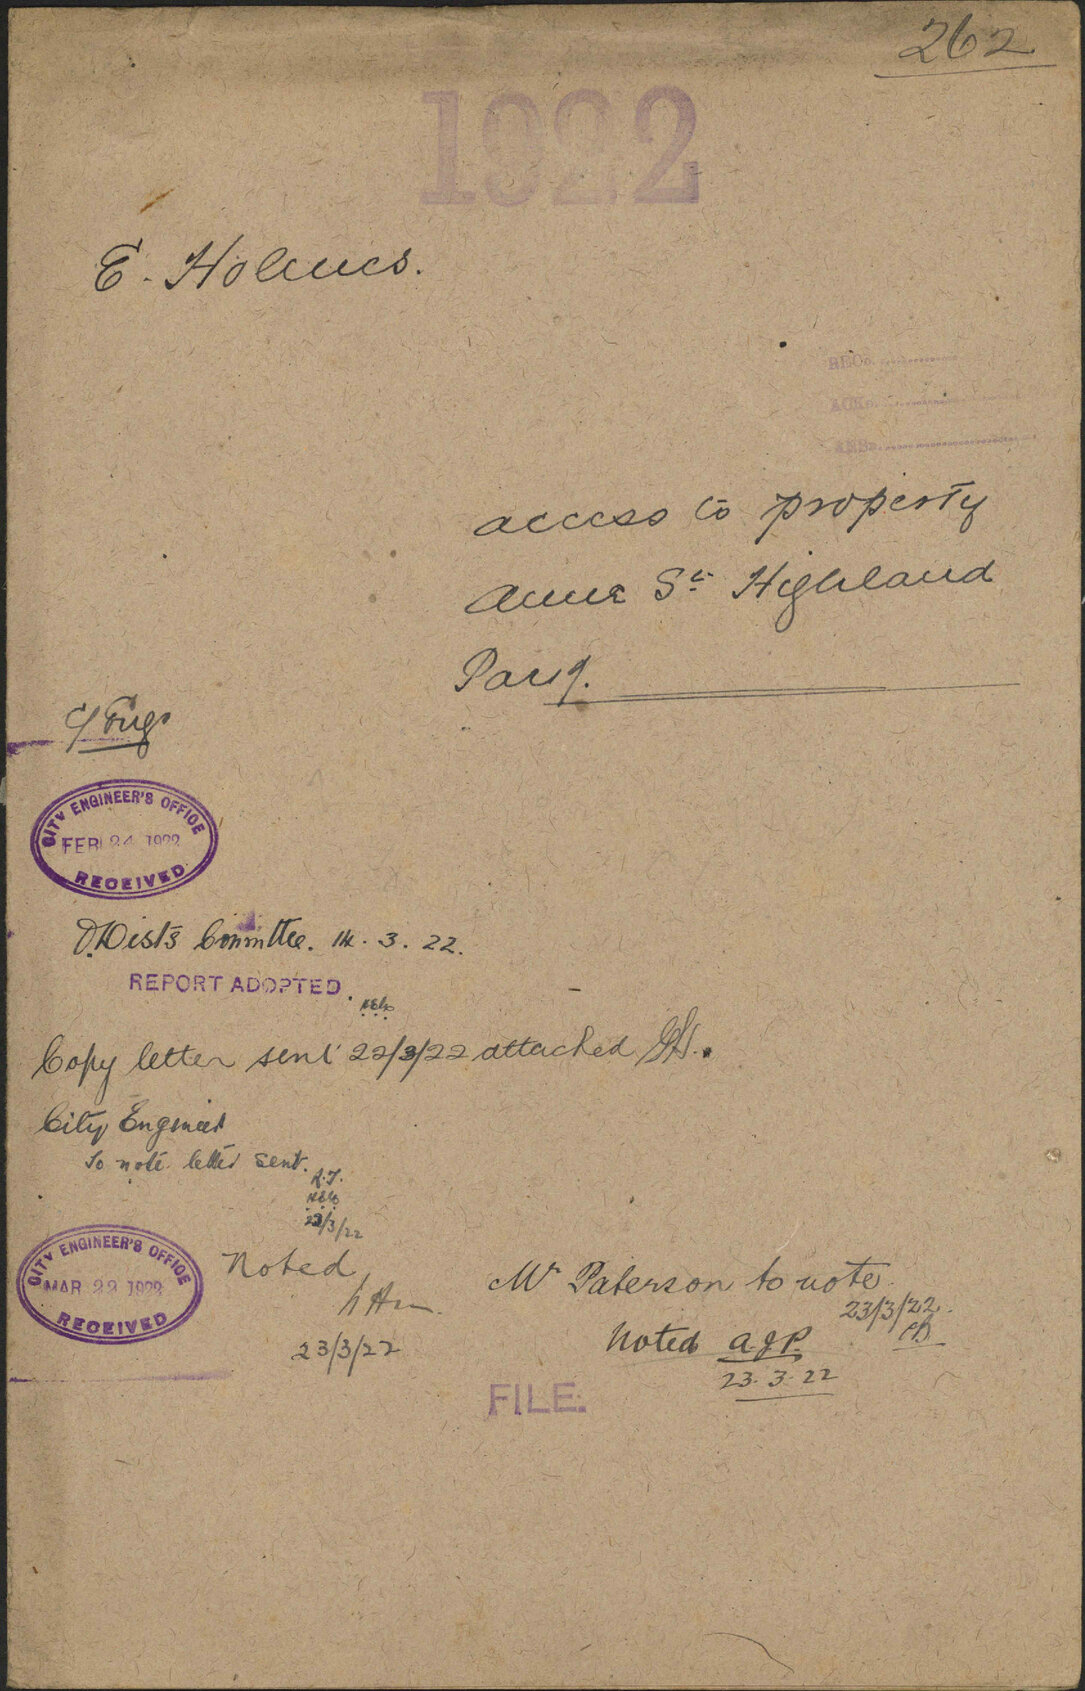 262
1922
E. Holmes.
REC
ACK
ANS
access to property
Anne St. Highland
Park.
C/Engr
CITY ENGINEER'S OFFICE
FEB 24 1922
RECEIVED
Committee. 14. 3. 22.
REPORT ADOPTED.
Copy letter sent 22/3/22 attached
City Engineer
To note letter sent.
R.T.
22/3/22
CITY ENGINEER'S OFFICE
MAR 22 1922
RECEIVED
Noted
23/3/22
Mr Paterson to note.
23/3/22.
Noted A.J.P.
23.3.22
FILE.